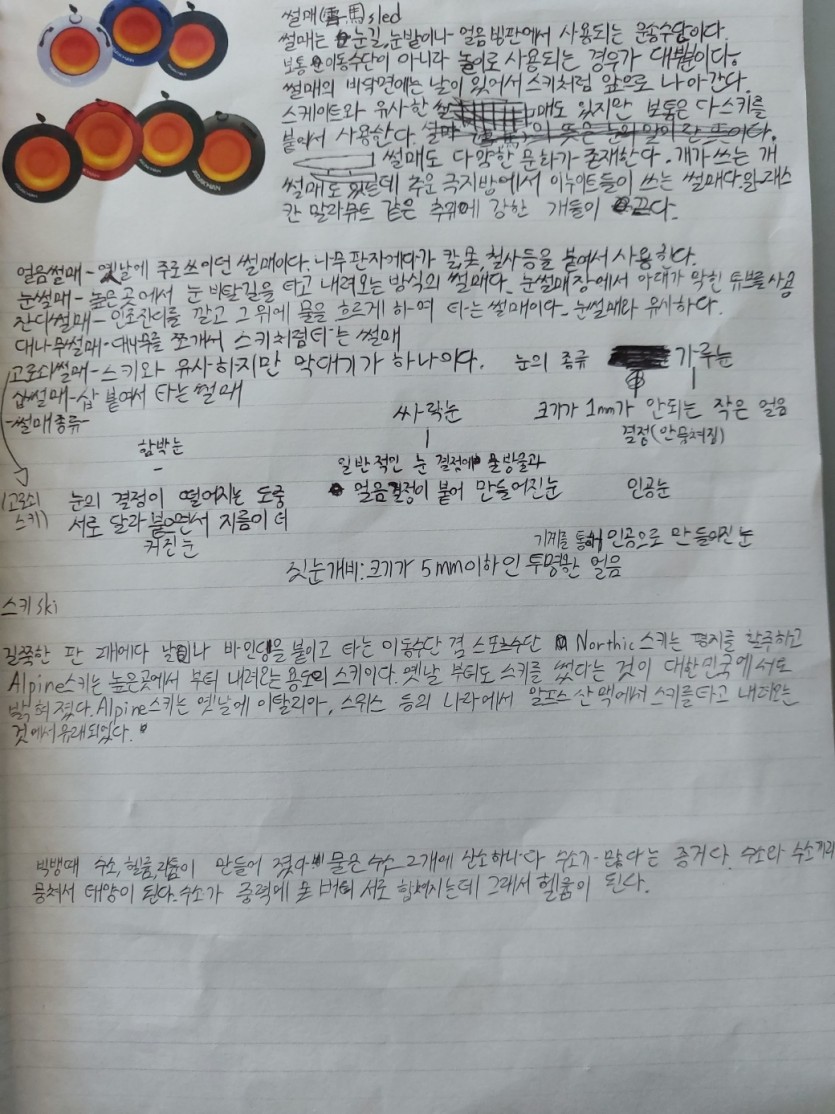 썰매(雪馬)sled
썰매는 눈길,눈밭이나 얼음빙판에서 사용되는 운송수단이다.
보통 이동수단이 아니라 놀이로 사용되는 경우가 대부분이다.
썰매의 바닥면에는 날이 있어서 스키처럼 앞으로 나아간다.
스케이트와 유사한 썰매도 있지만 보통은 다 스키를
붙여서 사용한다.
썰매도 다양한 문화가 존재한다. 개가 쓰는 개
썰매도 있는데 추운 극지방에서 이누이트들이 쓰는 썰매다. 알래스
칸 말라뮤트 같은 추위에 강한 개들이 끈다.
얼음썰매-옛날에 주로 쓰이던 썰매이다. 나무 판자에다가 칼,못,철사등을 붙여서 사용한다.
눈썰매-높은 곳에서 눈 비탈길을 타고 내려오는 방식의 썰매다. 눈썰매장에서 아래가 막힌 튜브를 사용
잔디썰매-인조잔디를 깔고 그 위에 물을 흐르게 하여 타는 썰매이다. 눈썰매와 유사하다.
대나무썰매-대나무를 쪼개서 스키처럼 타는 썰매
고로쇠썰매-스키와 유사하지만 막대기가 하나이다.
삽썰매-삽 붙여서 타는 썰매
-썰매종류-
(고로쇠
스키)
눈의 종류
가루눈
크기가 1mm가 안되는 작은 얼음
결정(안뭉쳐짐)
싸락눈
일반적인 눈 결정에 물방울과
얼음결정이 붙어 만들어진눈
함박눈
눈의 결정이 떨어지는 도중
서로 달라 붙으면서 지름이 더
커진 눈
인공눈
기계를 통해 인공으로 만들어진 눈
진눈개비:크기가 5mm이하인 투명한 얼음
스키 ski
길쭉한 판 2개에다 날이나 바인딩을 붙이고 타는 이동수단 겸 스포츠수단 Northic스키는 평지를 활주하고
Alpine스키는 높은곳에서 부터 내려오는 용도의 스키이다. 옛날 부터도 스키를 썼다는 것이 대한민국에서도
밝혀졌다. Alpine스키는 옛날에 이탈리아, 스위스 등의 나라에서 알프스 산맥에서 스키를 타고 내려오는
것에서 유래되었다.
빅뱅때 수소,헬륨,리튬이 만들어 졌다 물은 수소 2개에 산소하나다 수소가 많다는 증거다. 수소와 수소끼리
뭉쳐서 태양이 된다. 수소가 중력에 못 버텨 서로 합쳐지는데 그래서 헬륨이 된다.